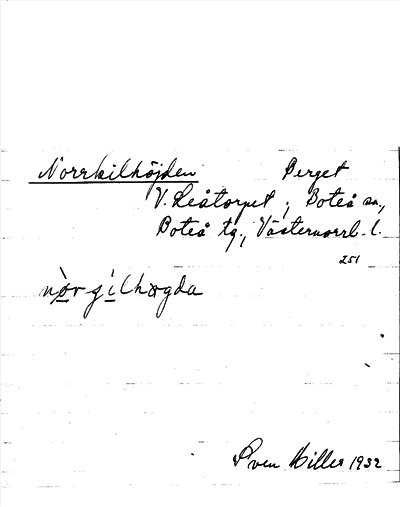 Norrkilhöjden Berget
V. Leåtorpet ; Boteå sn.,
Boteå tg., Västernorrl. l.
251
nòrgílhøgda
Sven Hiller 1932